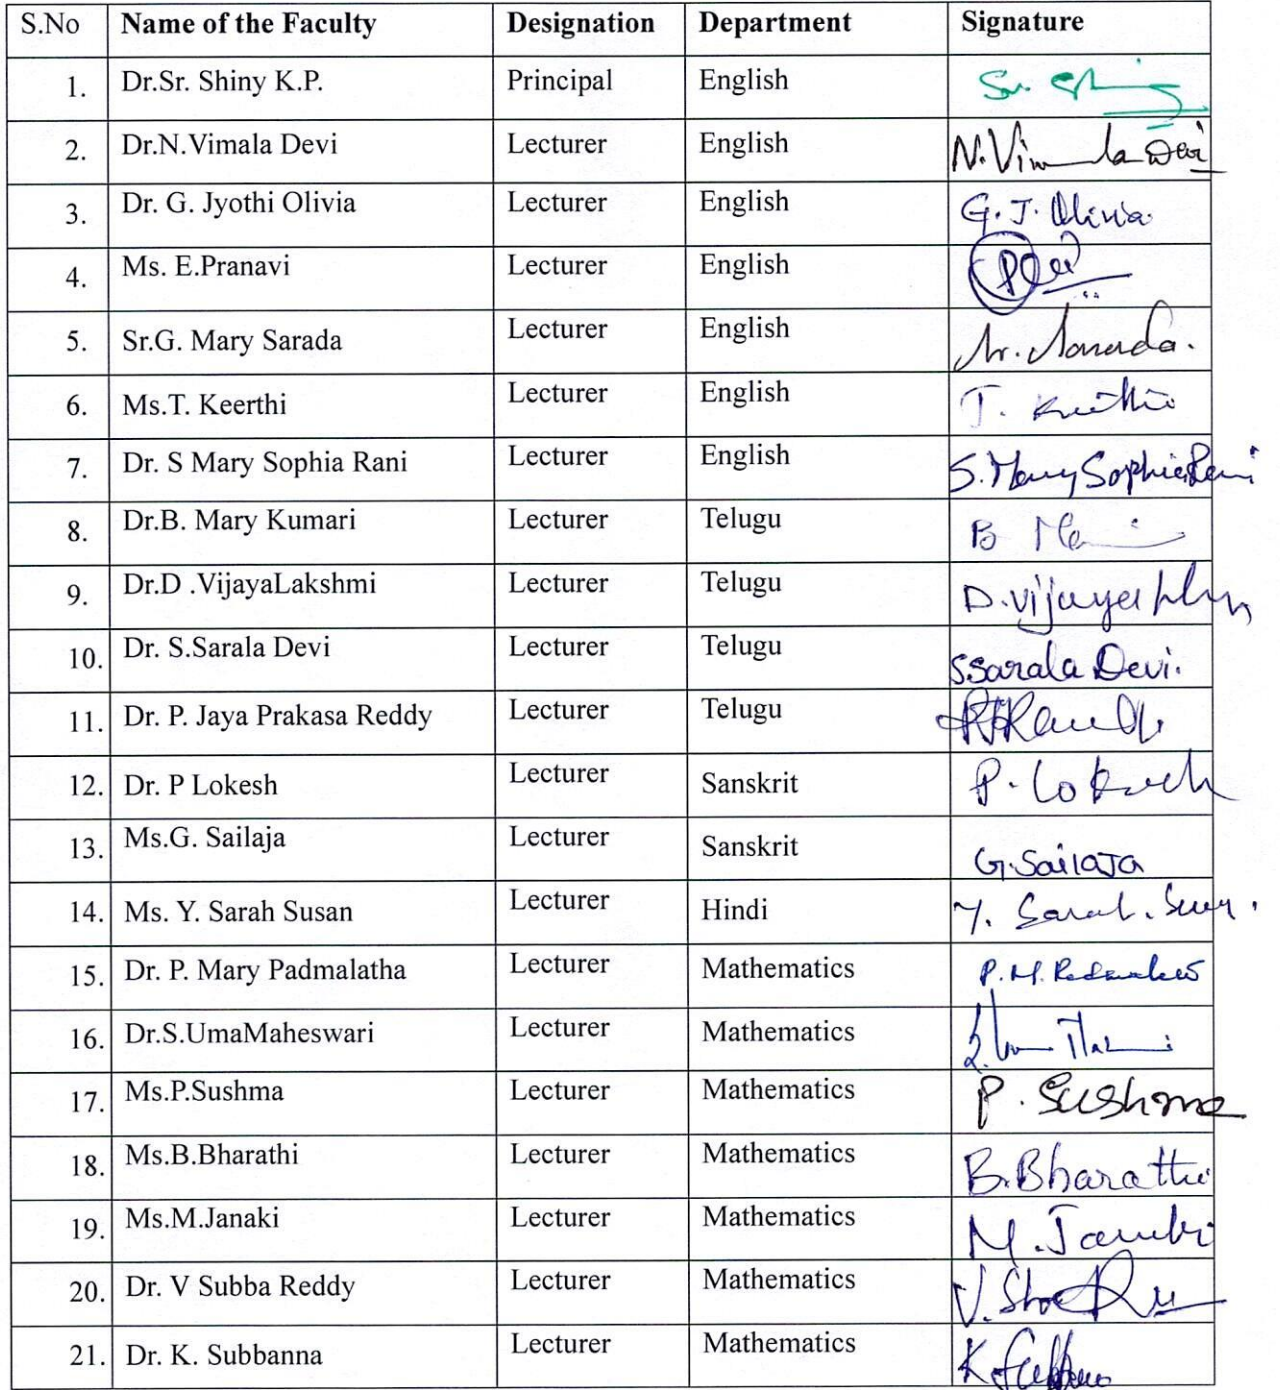 S.No Name of the Faculty Designation Department Signature
1. Dr.Sr. Shiny K.P. Principal English Sr.
2. Dr.N.Vimala Devi Lecturer English N.Vimala Devi
3. Dr. G. Jyothi Olivia Lecturer English G.J.Olivia.
4. Ms. E.Pranavi Lecturer English
5. Sr.G. Mary Sarada Lecturer English Sr. Sarada.
6. Ms.T. Keerthi Lecturer English T. Keerthi
7. Dr. S Mary Sophia Rani Lecturer English S.Mary Sophia Rani
8. Dr.B. Mary Kumari Lecturer Telugu B
9. Dr.D .VijayaLakshmi Lecturer Telugu
10. Dr. S.Sarala Devi Lecturer Telugu S.Sarala Devi.
11. Dr. P. Jaya Prakasa Reddy Lecturer Telugu
12. Dr. P Lokesh Lecturer Sanskrit P. Lokesh
13. Ms.G. Sailaja Lecturer Sanskrit G.Sailaja
14. Ms. Y. Sarah Susan Lecturer Hindi Y. Sarah.
15. Dr. P. Mary Padmalatha Lecturer Mathematics P.M.
16. Dr.S.UmaMaheswari Lecturer Mathematics
17. Ms.P.Sushma Lecturer Mathematics P. Sushma
18. Ms.B.Bharathi Lecturer Mathematics B.Bharathi
19. Ms.M.Janaki Lecturer Mathematics M.Janaki
20. Dr. V Subba Reddy Lecturer Mathematics
21. Dr. K. Subbanna Lecturer Mathematics